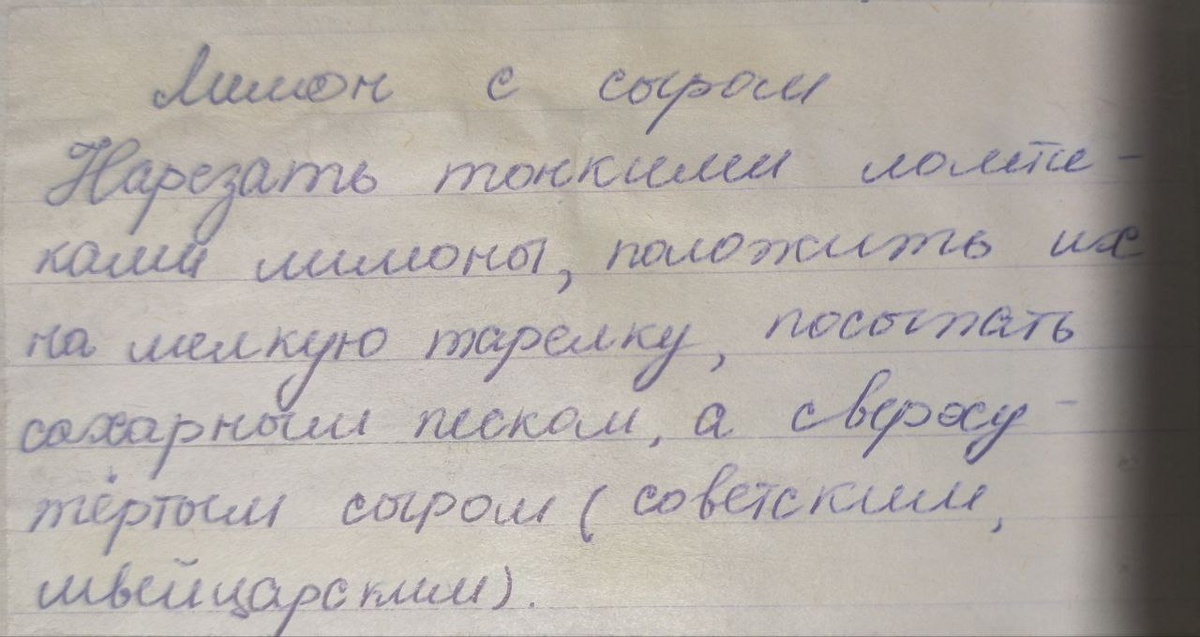 Лимон с сыром
Нарезать тонкими ломти-
ками лимоны, положить их
на мелкую тарелку, посыпать
сахарным песком, а сверху -
тёртым сыром (советским,
швейцарским).